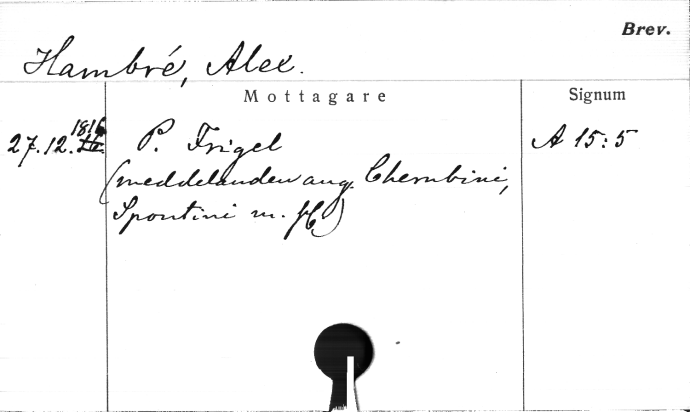 Brev.
Hambré, Alex.
Mottagare
Signum
1816
27.12.
P. Frigel
A 15:5
(meddelanden ang. Cherubini,
Spontini m. fl.)